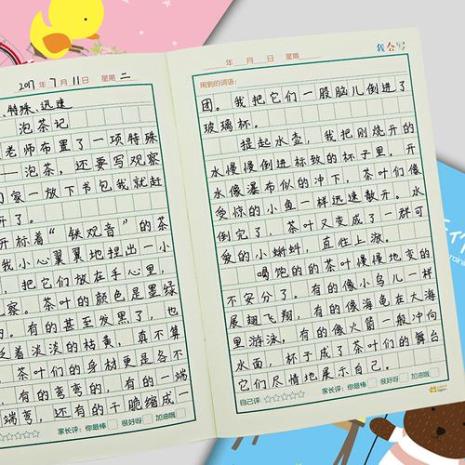 2017年7月11日 星期二
、特殊、迅速
泡茶记
老师布置了一项特殊
——泡茶，还要写观察
家一放下书包我就赶
开了。
开标着“铁观音”的茶
我小心翼翼地捏出一小
，把它们放在手心里，
察。茶叶的颜色是墨绿
的。有的甚至发黑了，也
泛着淡淡的枯黄，真不算
茶叶们的身材更是各不
有的弯弯的，有的一端
端弯，还有的干脆缩成一
家长评：你最棒 很好呀 加油哦
年 月 日 星期
我会写
用到的词语：
团。我把它们一股脑儿倒进了
玻璃杯。
提起水壶，我把刚烧开的
水慢慢倒进标致的杯子里。开
水像瀑布似的冲下，茶叶们像
受惊的小鱼一样迅速散开。水
倒完了，茶叶又变成了一群可
爱的小蝌蚪，直往上游。
喝饱的的茶叶慢慢地变的
不安分了。有的像小鸟儿一样
展翅飞翔，有的像海龟在大海
里游泳，有的像火箭一般冲向
水面，杯子成了茶叶们的舞台
它们尽情地展示自己。
自己评：
家长评：你最棒 很好呀 加油哦